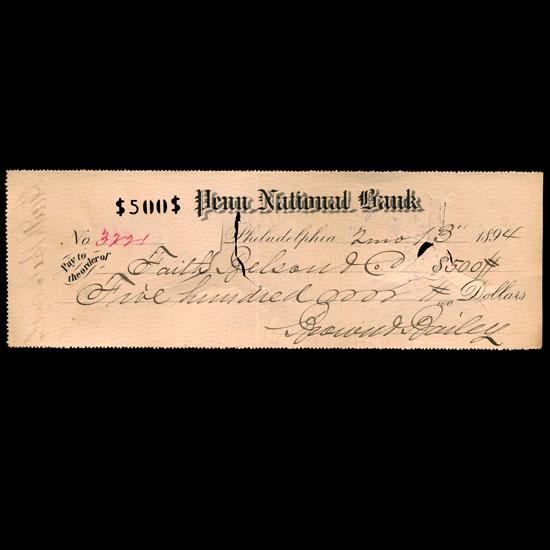 $500$ Penn National Bank
No 3221 Philadelphia 2mo 13" 1894
Pay to the order of Faith, & Co $500
Five hundred Dollars
Brown & Bailey